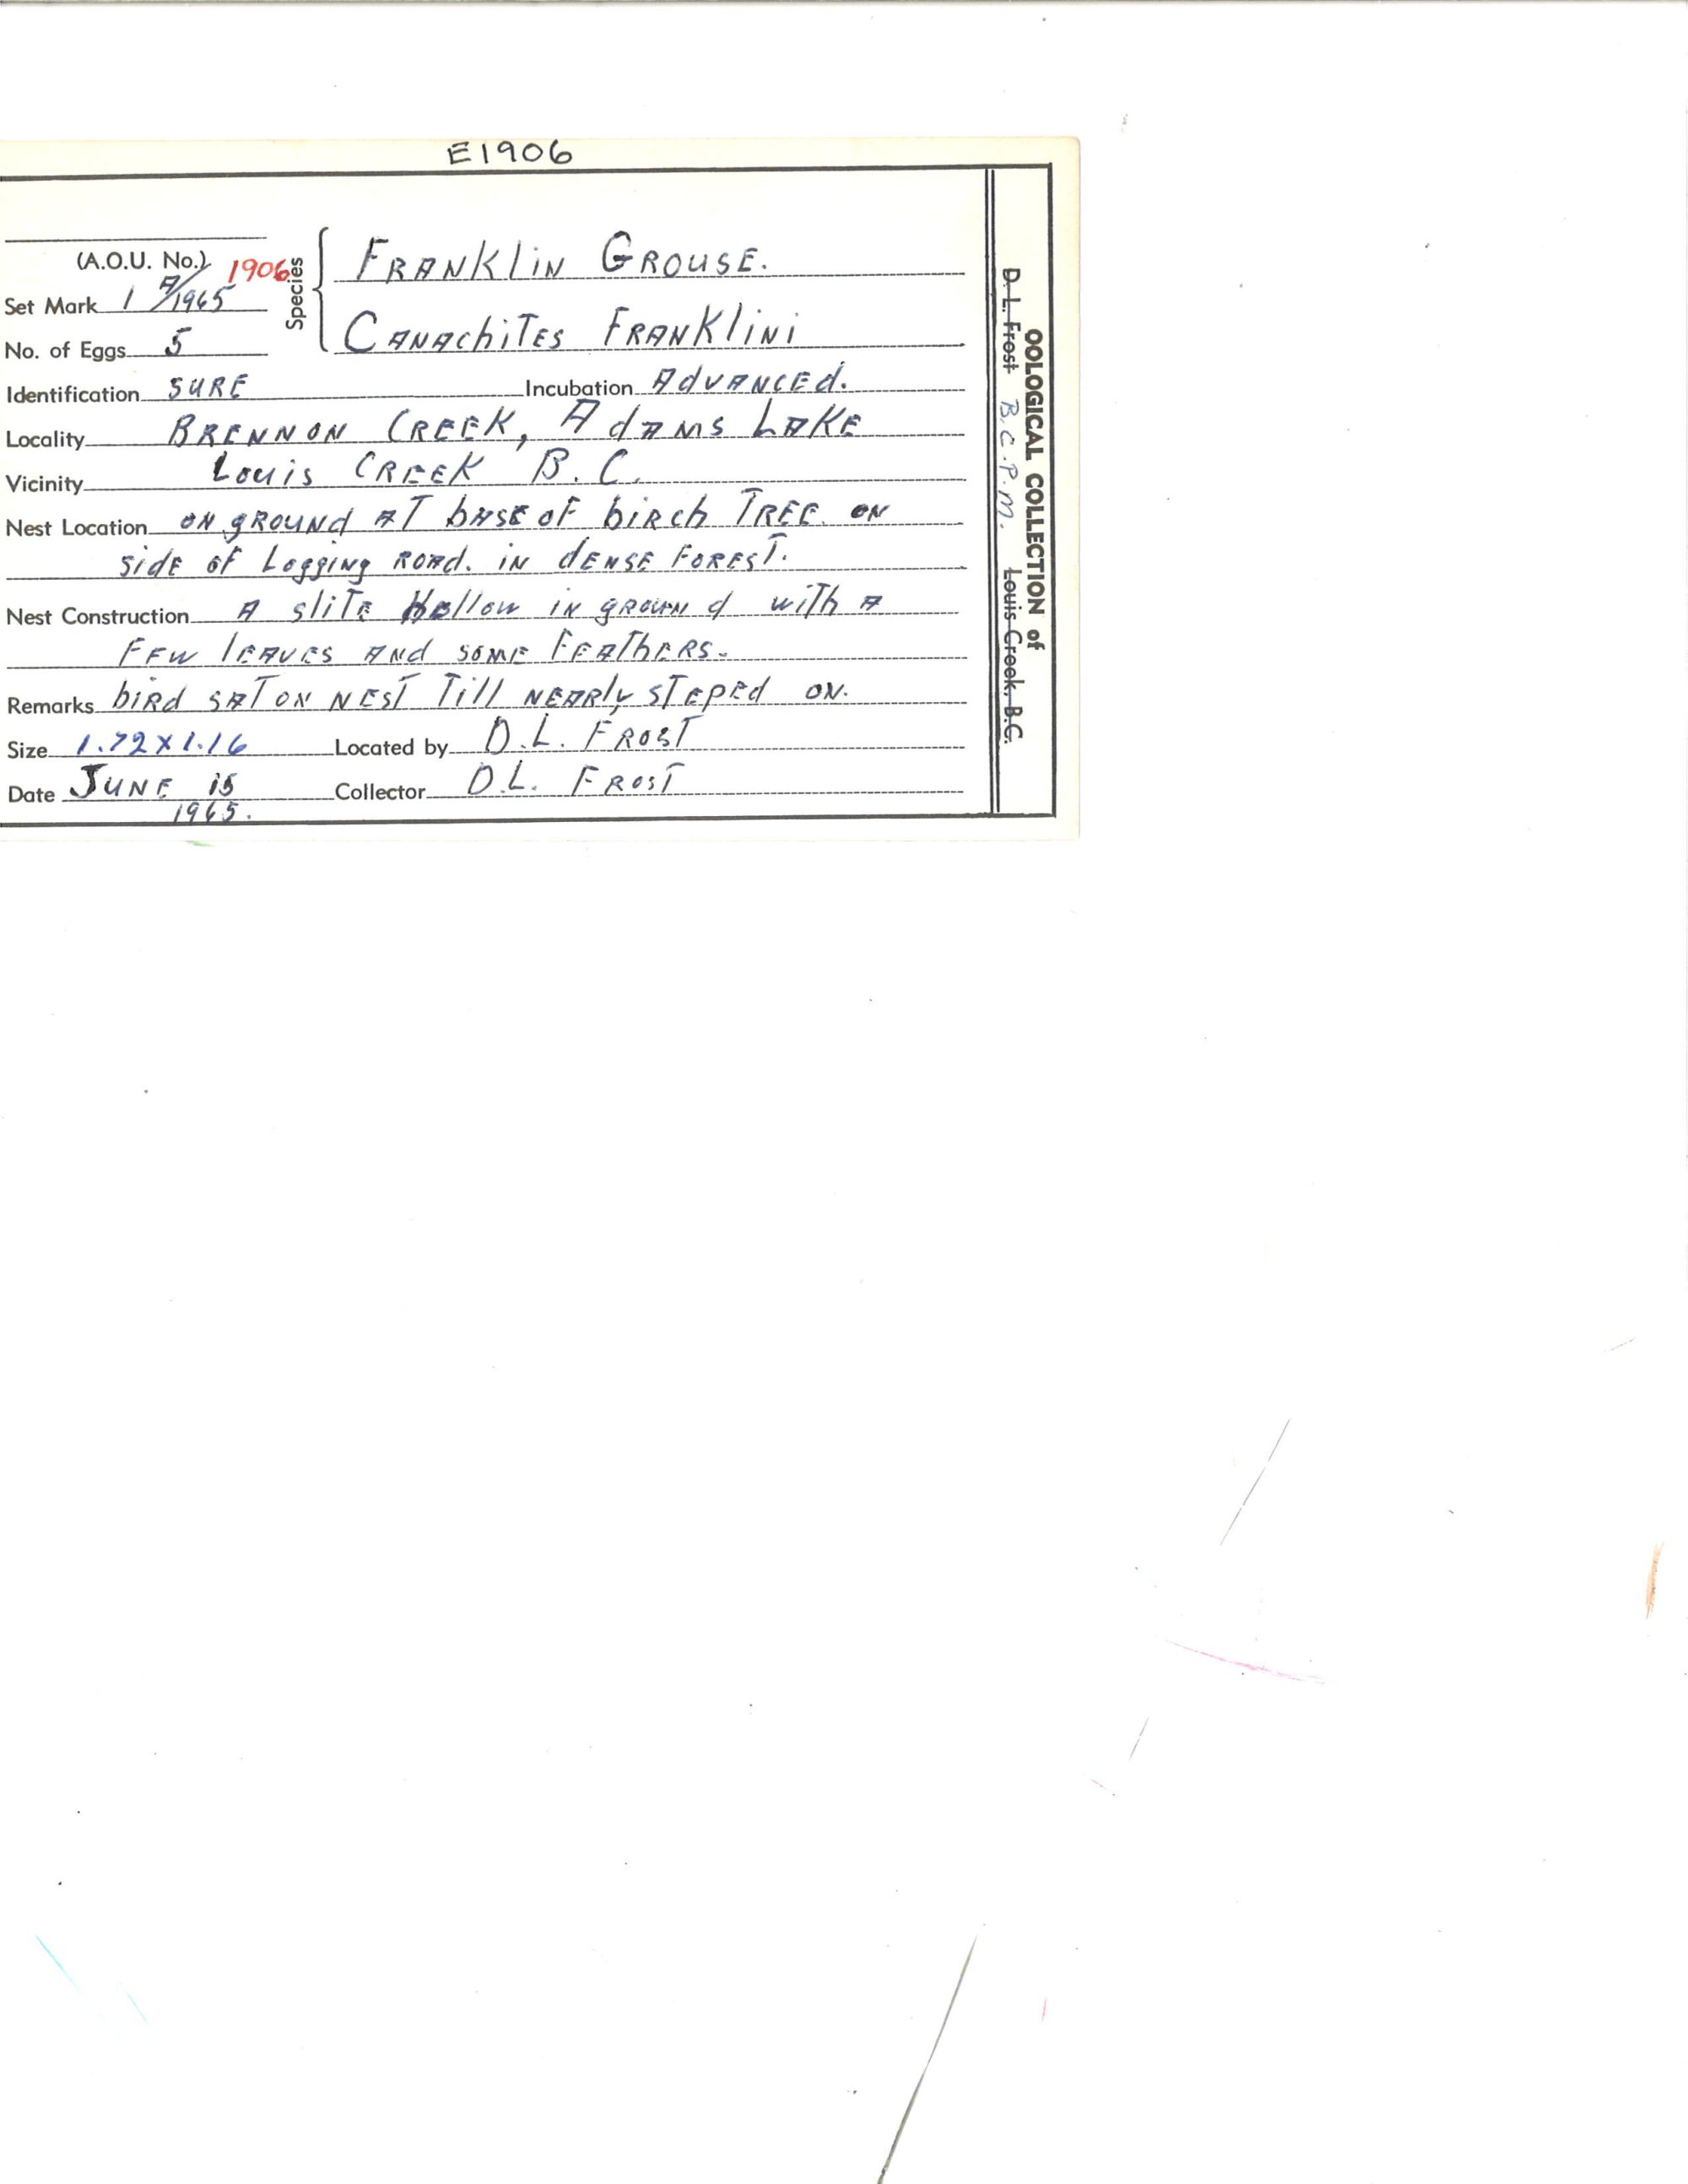 E1906
(A.O.U. No.) 1906
Set Mark 1 A/1965
No. of Eggs 5
Species
FRANKLIN GROUSE.
CANACHITES FRANKLINI
Identification SURE Incubation ADVANCED.
Locality BRENNON CREEK, ADAMS LAKE
Vicinity LOUIS CREEK B.C.
Nest Location ON GROUND AT bASE OF biRch TREE. ON
SidE OF Logging ROAD. IN dENSE FOREST.
Nest Construction A sliTE Hollow IN gROUNd with A
FEW lEAVES ANd SOME FEAThERS.
Remarks biRd SAT ON NEST Till NEARly STEPEd ON.
Size 1.72 X 1.16 Located by D.L. FROST
Date JUNE 15 Collector D.L. FROST
1965.
OOLOGICAL COLLECTION of
D. L. Frost B.C.P.M. Louis Creek, B.C.